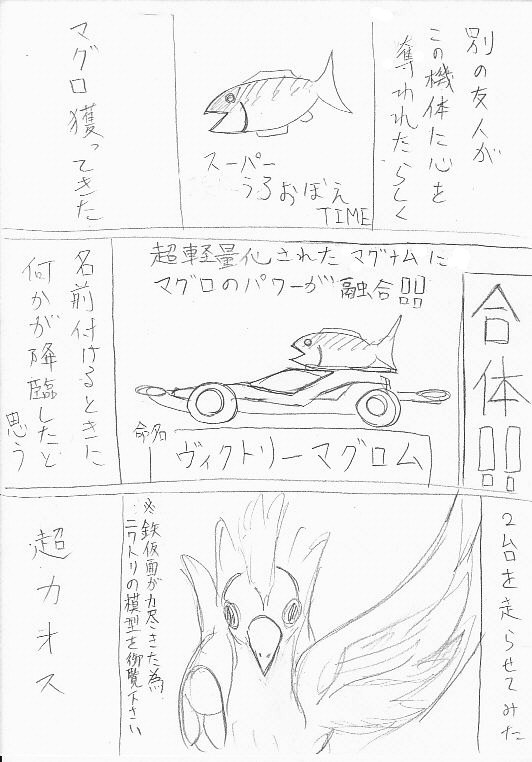 別の友人が
この機体に心を
奪われたらしく
スーパー
うろおぼえ
TIME
マグロ獲ってきた
合体!!
超軽量化されたマグナムに
マグロのパワーが融合!!
命名
ヴィクトリーマグロム
名前付けるときに
何かが降臨したと
思う
2台を走らせてみた
※鉄仮面が力尽きた為
ニワトリの模型を御覧下さい
超カオス